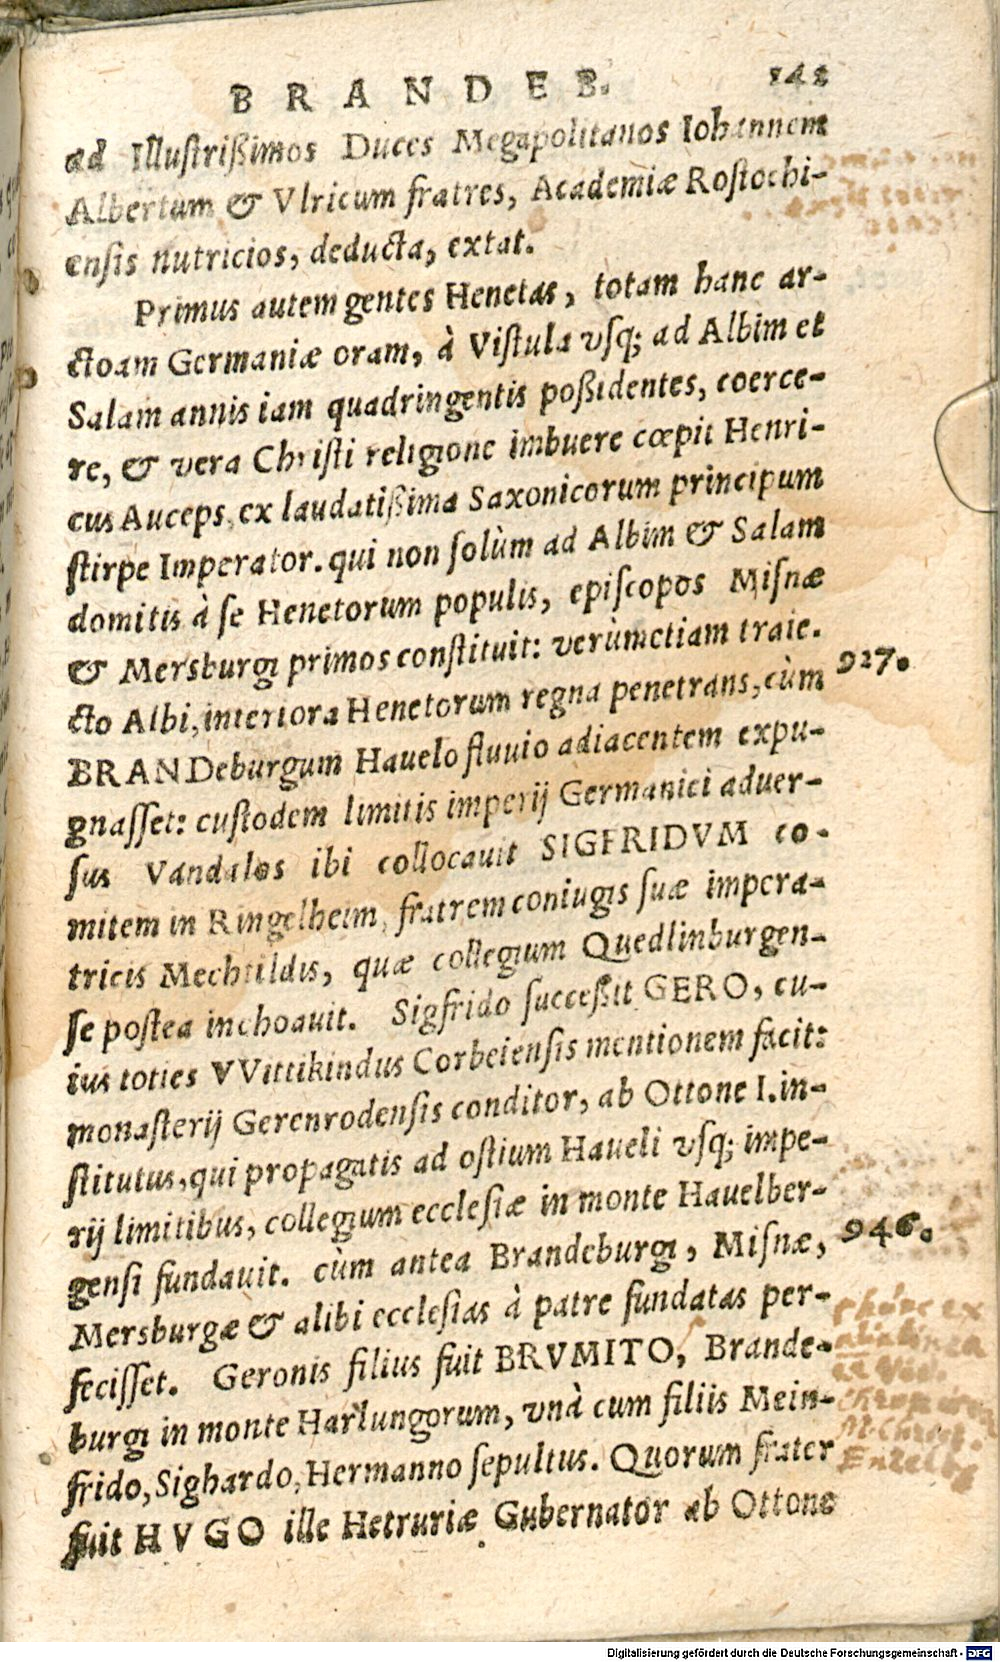 BRANDEB. 142
ad Illuſtrißimos Duces Megapolitanos Iohannem
Albertum & Vlricum fratres, Academiæ Roſtochi-
enſis nutricios, deducta, extat.
Primus autem gentes Henetas, totam hanc ar-
ctoam Germaniæ oram, à Viſtula vſq; ad Albim et
Salam annis iam quadringentis poßidentes, coerce-
re, & vera Chriſti religione imbuere cœpit Henri-
cus Auceps, ex laudatißima Saxonicorum principum
ſtirpe Imperator. qui non ſolùm ad Albim & Salam
domitis à ſe Henetorum populis, epiſcopos Miſnæ
& Mersburgi primos conſtituit: verùmetiam traie.
cto Albi, interiora Henetorum regna penetrans, cùm
927.
BRANDeburgum Hauelo fluuio adiacentem expu-
gnaſſet: cuſtodem limitis imperij Germanici aduer-
ſus Vandalos ibi collocauit SIGFRIDVM co-
mitem in Ringelheim, fratrem coniugis ſuæ impera-
tricis Mechtildis, quæ collegium Quedlinburgen-
ſe poſtea inchoauit. Sigfrido ſucceßit GERO, cu-
ius toties VVittikindus Corbeienſis mentionem facit:
monaſterij Gerenrodenſis conditor, ab Ottone I. in-
ſtitutus, qui propagatis ad oſtium Haueli vſq; impe-
rij limitibus, collegium eccleſiæ in monte Hauelber-
946.
genſi fundauit. cùm antea Brandeburgi, Miſnæ,
Mersburgæ & alibi eccleſias à patre fundatas per-
feciſſet. Geronis filius fuit BRVMITO, Brande-
burgi in monte Harlungorum, vnà cum filiis Mein-
frido, Sighardo, Hermanno ſepultus. Quorum frater
fuit HVGO ille Hetruriæ Gubernator ab Ottone
Digitalisierung gefördert durch die Deutsche Forschungsgemeinschaft - DFG